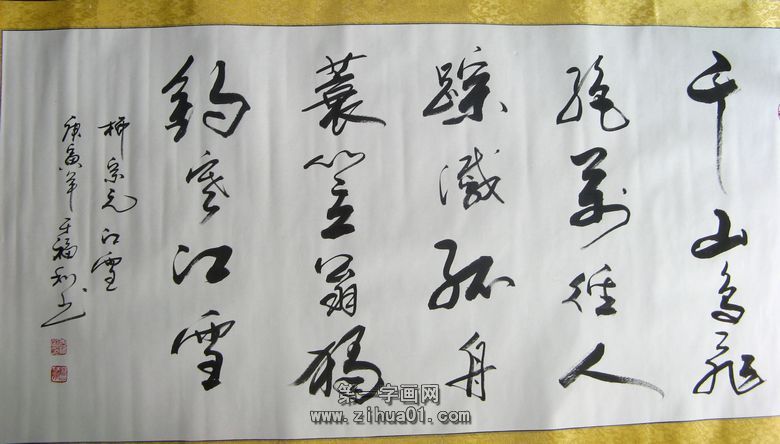 千山鸟飛
絶萬徑人
踪滅孤舟
蓑笠翁獨
釣寒江雪
柳宗元江雪
庚寅年 福利书
第一字画网
www.zihua01.com